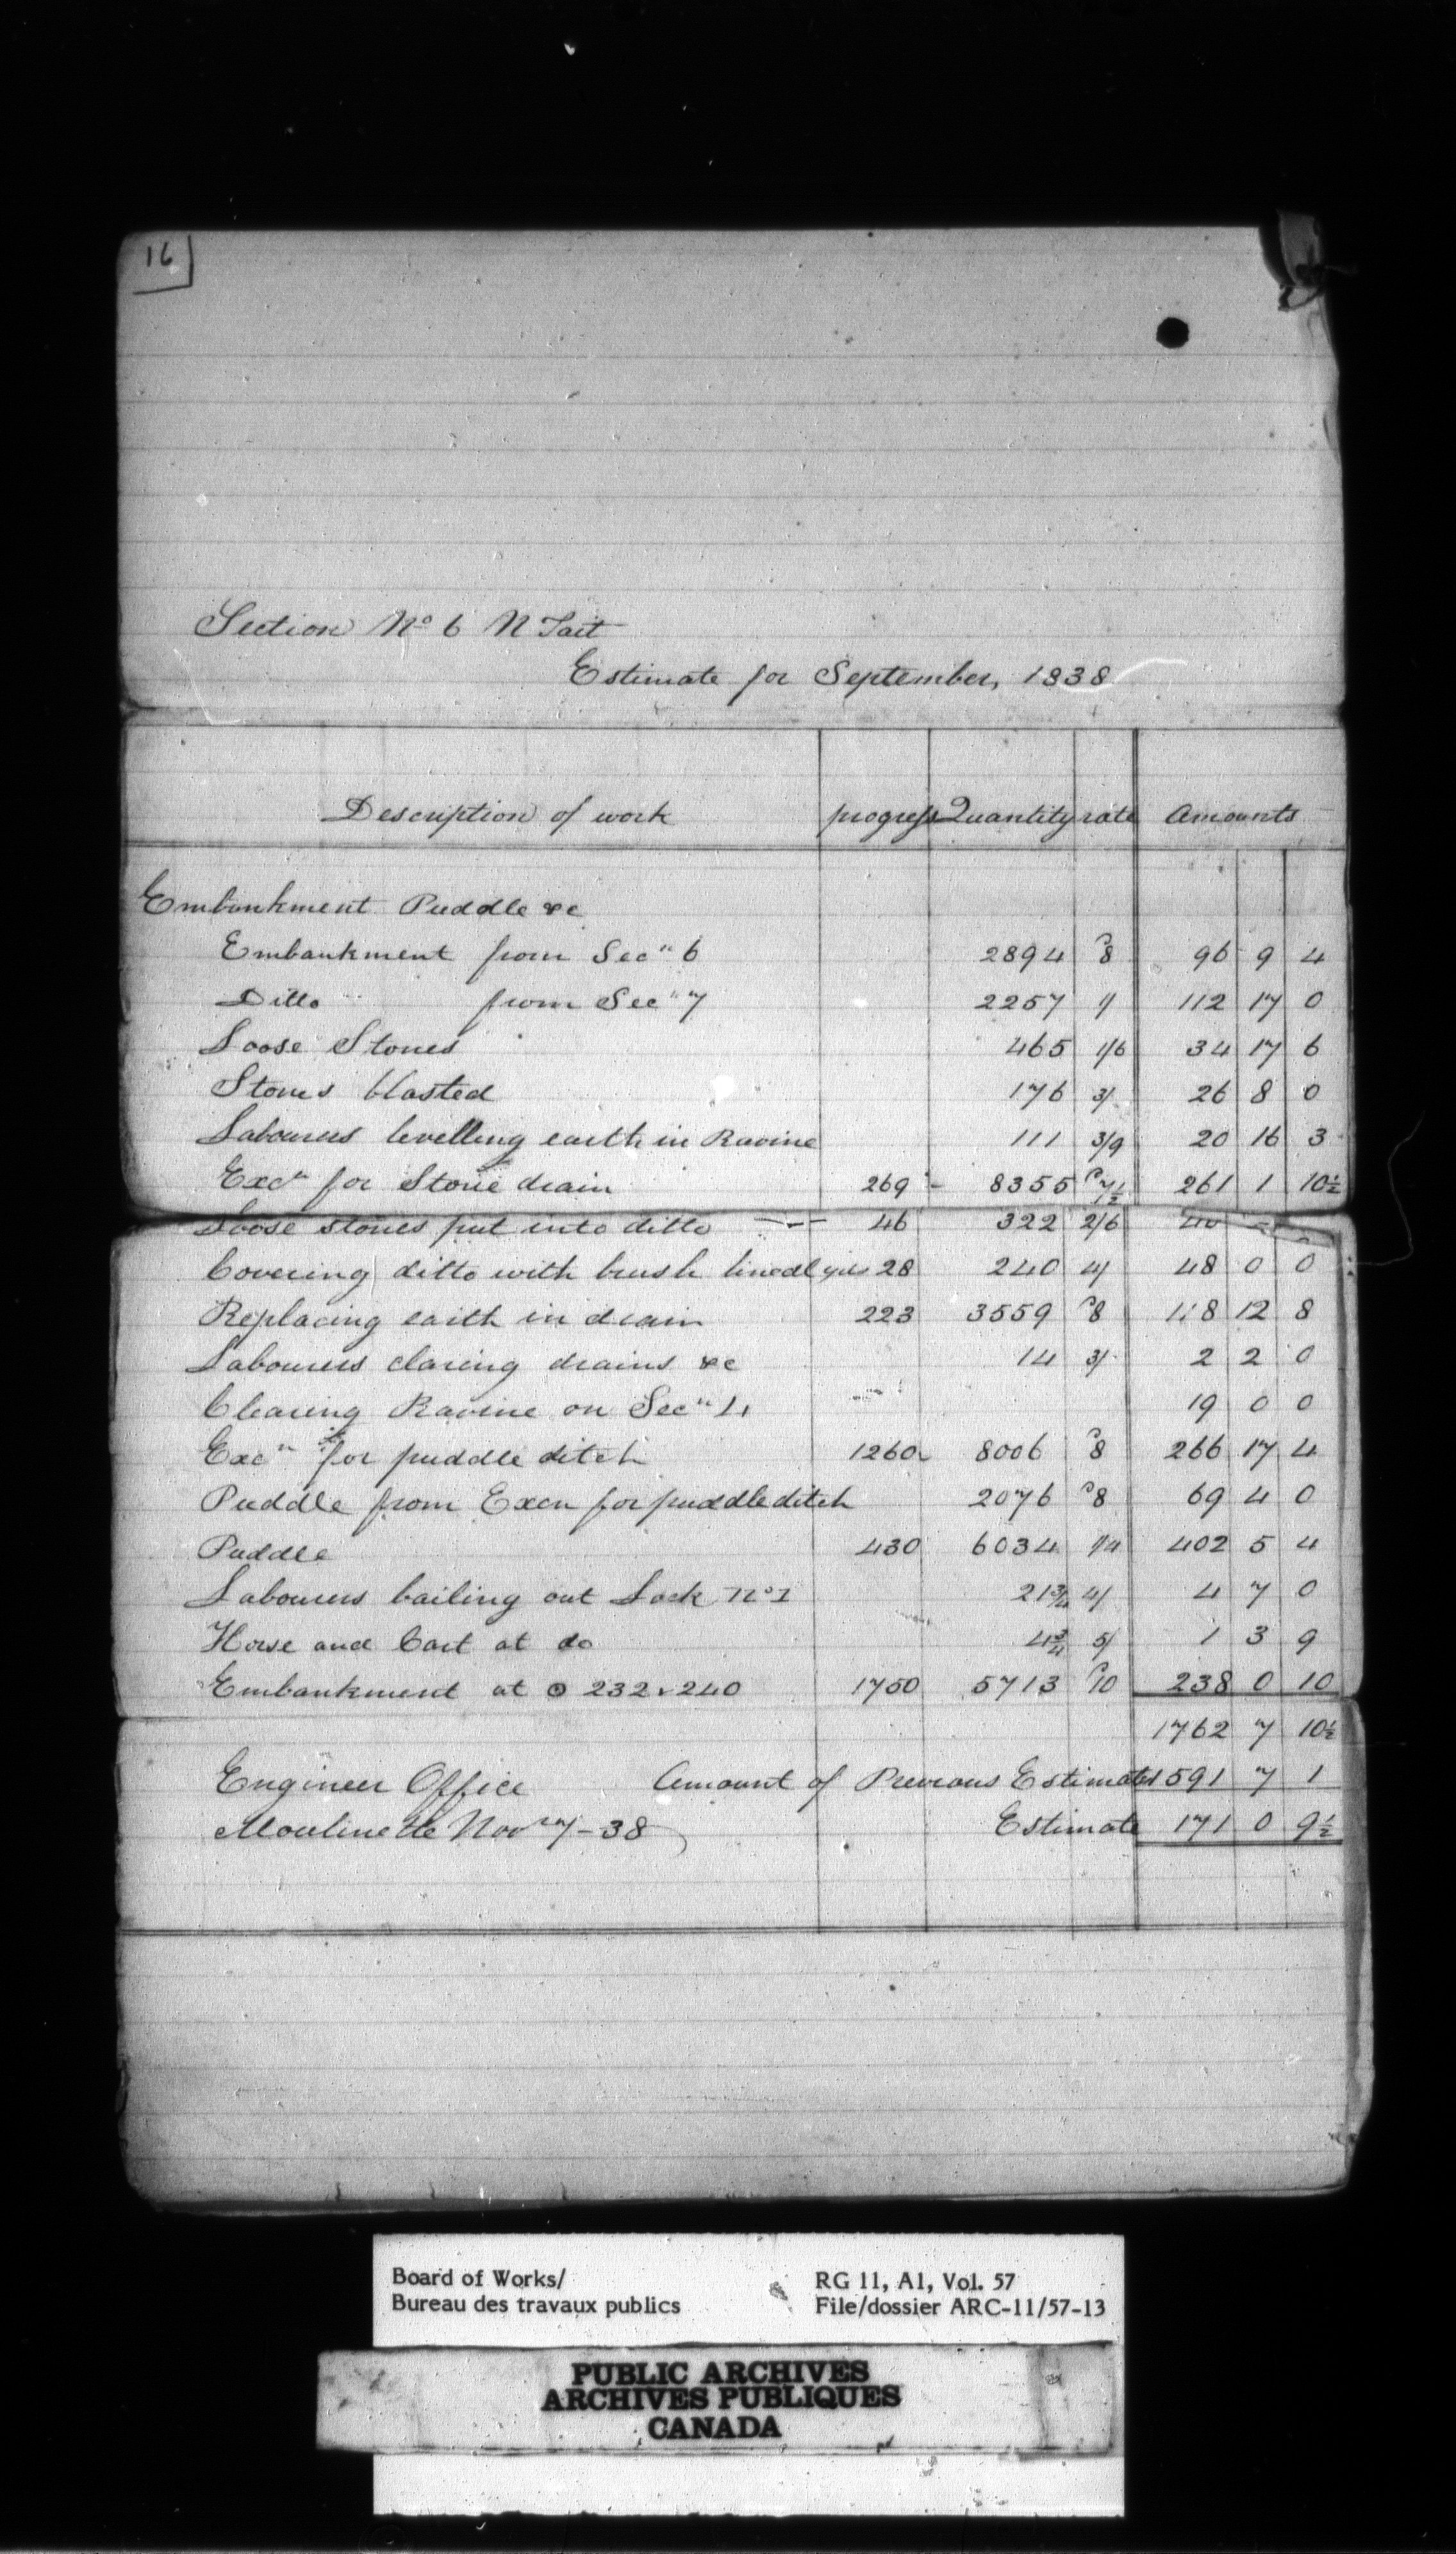 16
Section No 6 N Tait
Estimate for September, 1838
Description of work progress Quantity rate Amounts
Embankment Puddle &c
Embankment from Secn 6 2894 8 96 9 4
Ditto from Secn 7 2257 1/ 112 17 0
Loose Stones 465 1/6 34 17 6
Stones blasted 176 3/ 26 8 0
Labourers levelling earth in Ravine 111 3/9 20 16 3
Excn for Stone drain 269 - 8355 7½ 261 1 10½
Loose stones put into ditto 46 322 2/6 40
Covering ditto with brush lineal yds 28 240 4/ 48 0 0
Replacing earth in drain 223 3559 8 118 12 8
Labourers claring drains &c 14 3/ 2 2 0
Clearing Ravine on Secn 19 0 0
Excn for puddle ditch 1260 8006 8 266 17 4
Puddle from Excn for puddle ditch 2076 8 69 4 0
Puddle 430 6034 1/4 402 5 4
Labourers bailing out Lock No 1 21¾ 4/ 4 7 0
Horse and Cart at do 4¾ 5/ 1 3 9
Embankment at ⊙ 232 & 240 1750 5713 10 238 0 10
1762 7 10½
Engineer Office Amount of Previous Estimates 1591 7 1
Moulinette Novr 7 - 38 Estimate 171 0 9½
Board of Works/ RG 11, A1, Vol. 57
Bureau des travaux publics File/dossier ARC-11/57-13
PUBLIC ARCHIVES
ARCHIVES PUBLIQUES
CANADA